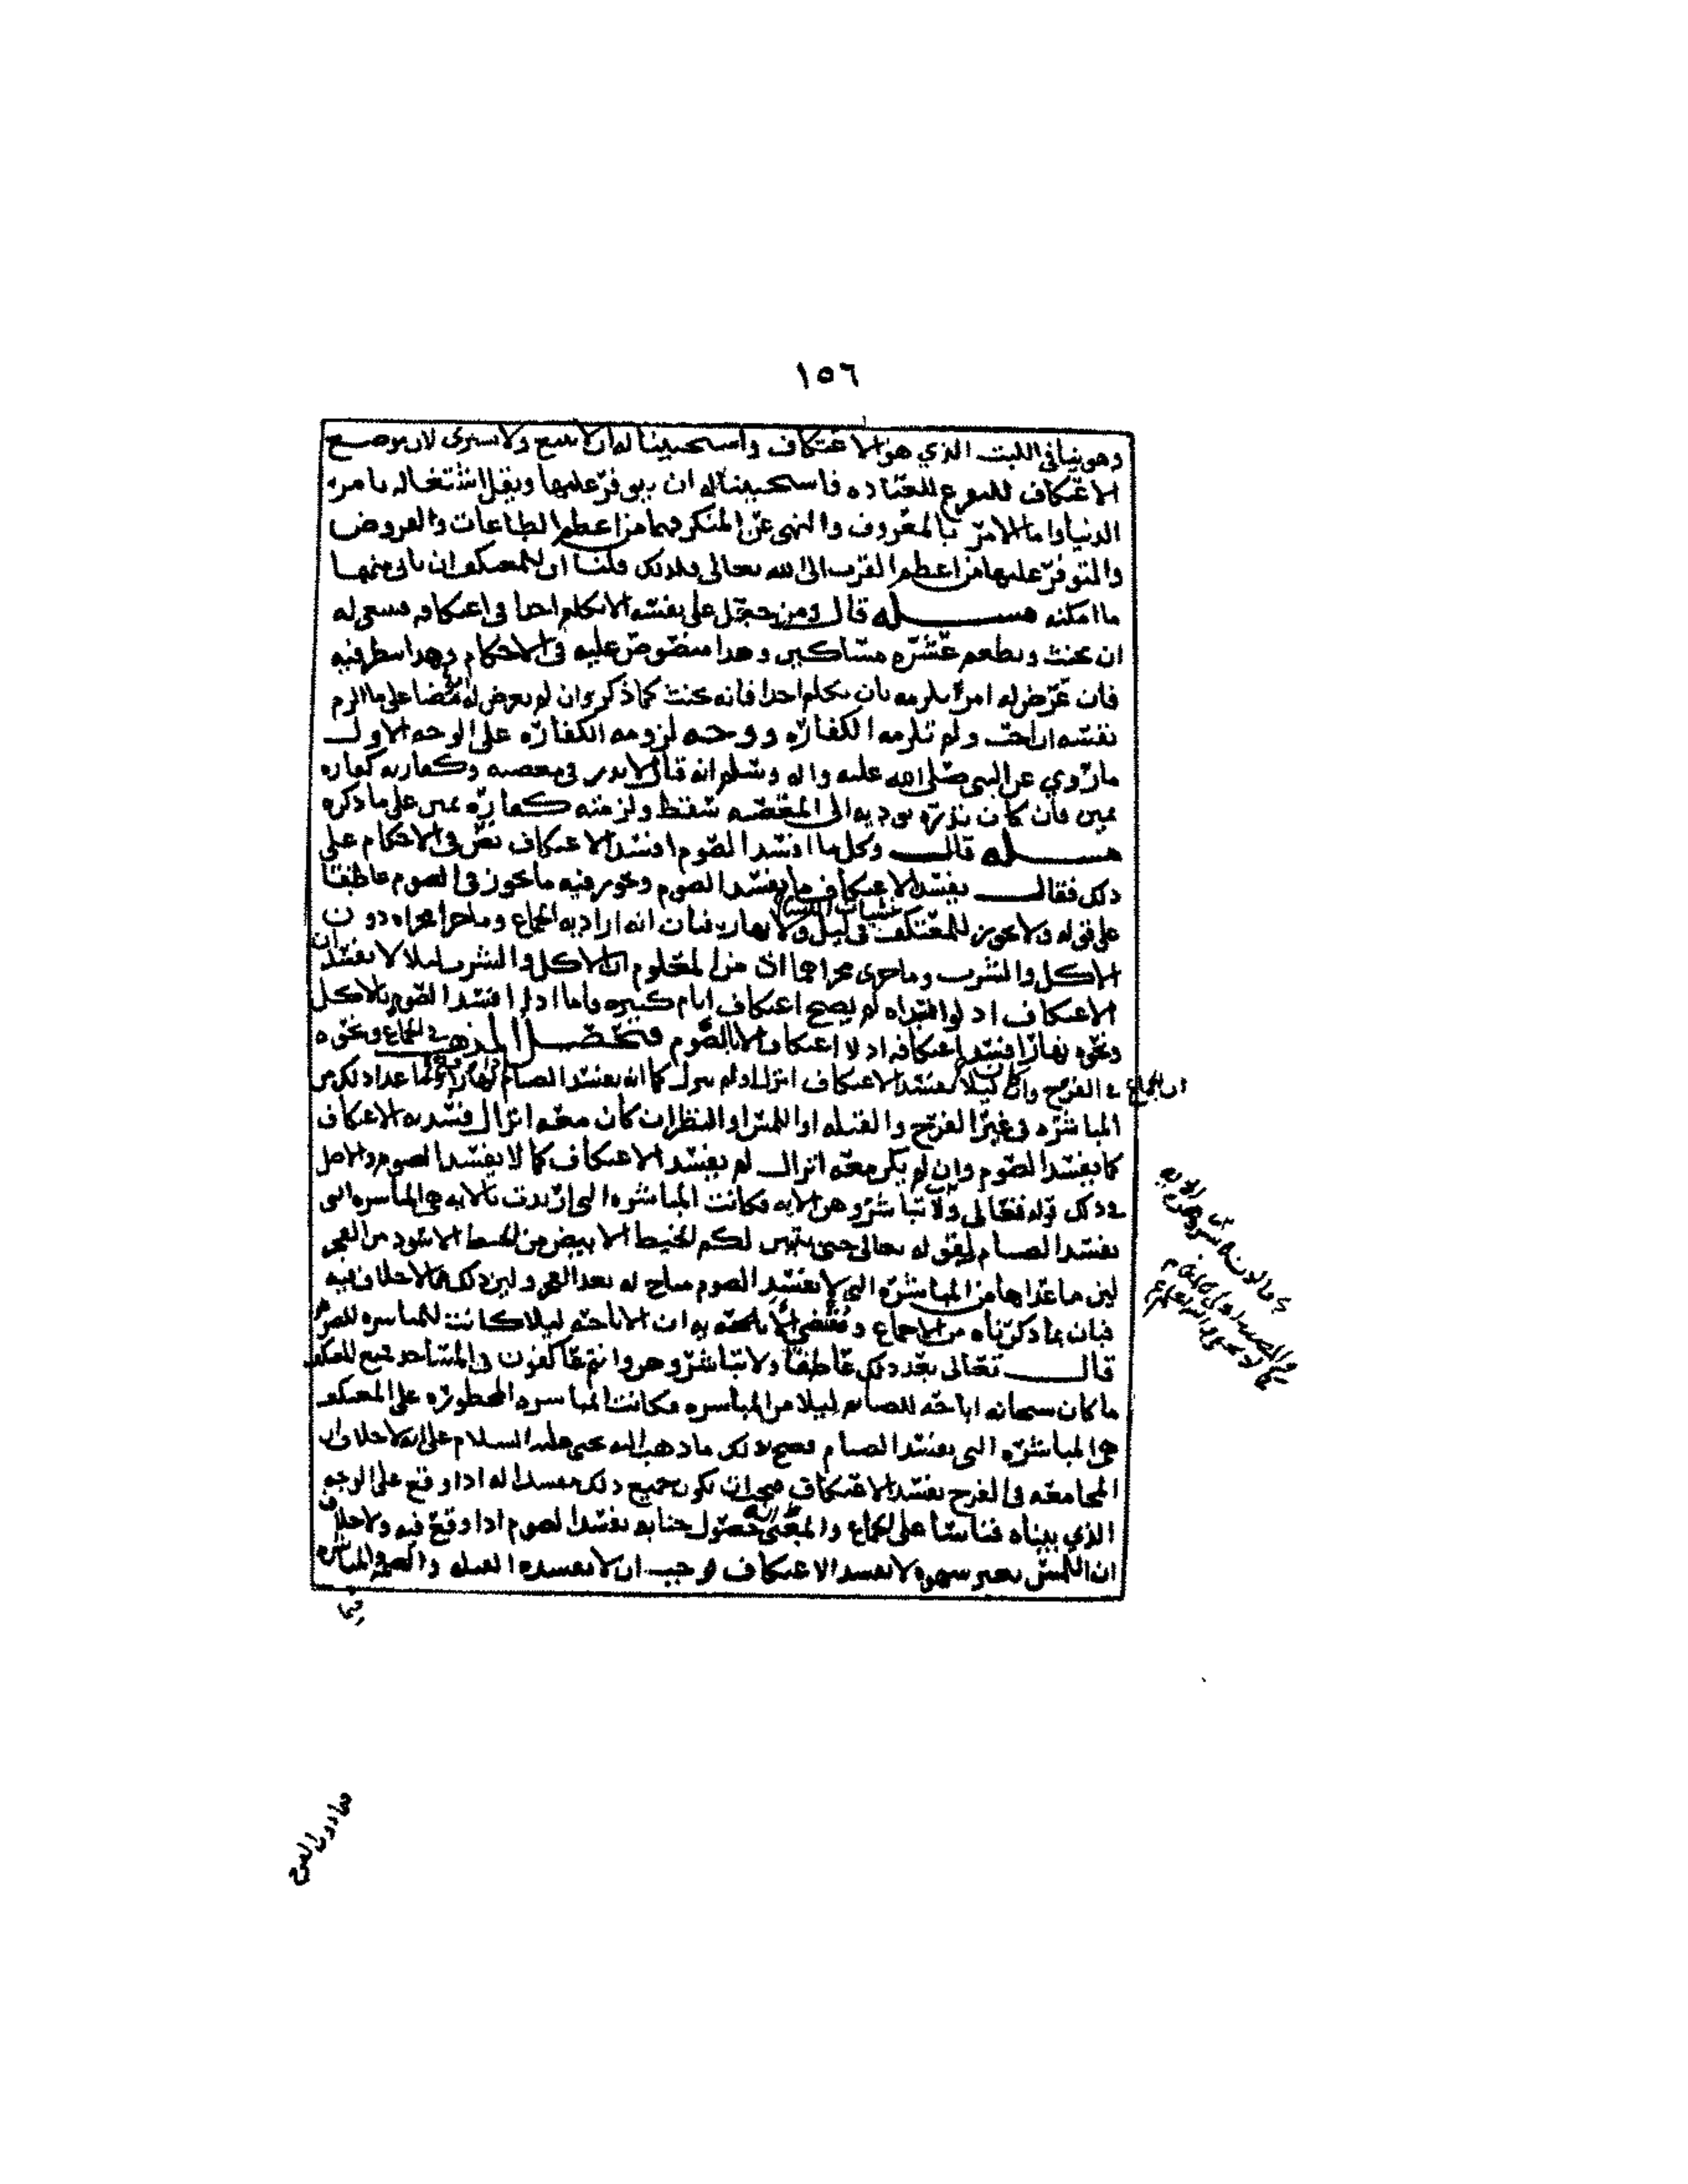 ١٥٦
وهو ينافي اللبث الذي هو الاعتكاف واستحببنا له ان لا يبيع ولا يشتري لان موضع
الاعتكاف للتفرغ للعباده فاستحببنا له ان يتوفر عليها ويقل اشتغاله بامر
الدنيا واما الامر بالمعروف والنهي عن المنكر فهما من اعظم الطاعات والفروض
والتوفر عليها من اعظم القرب الى الله تعالى ولذلك قلنا ان للمعتكف ان ياتي منهما
ما امكنه مسـله قال ومن جعل على نفسه الا يكلم احدا في اعتكافه فينبغي له
ان يحنث ويطعم عشره مساكين وهذا منصوص عليه في الاحكام وهذا ينظر فيه
فان عرض له امر يلزمه بان يكلم احدا فانه يحنث كما ذكر وان لم يعرض له مضا على ما الزم
نفسه ان احب ولم تلزمه الكفاره ووجه لزومه الكفاره على الوجه الاول
ما روي عن النبي صلى الله عليه واله وسلم انه قال لا نذر في معصيه وكفارته كفاره
يمين فان كان نذره يوديه الى المعصيه سقط ولزمته كفاره يمين على ما ذكره
مسـله قال وكل ما افسد الصوم افسد الاعتكاف نص في الاحكام على
ذلك فقال يفسد الاعتكاف ما يفسد الصوم ويجوز فيه ما يجوز في الصوم عاطفا
على قوله ولا يجوز للمعتكف غشيان النساء في ليل ولا نهار فبان انه اراد به الجماع وما جرا مجراه دون
الاكل والشرب وما جرى مجراهما اذ من المعلوم ان الاكل والشرب ليلا لا يفسدان
الاعتكاف اذ لو افسداه لم يصح اعتكاف ايام كثيره واما اذا افسد الصوم بالاكل
ونحوه نهارا فسد اعتكافه اذ لا اعتكاف الا بالصوم فتحصيل المذهب في الجماع ونحوه
ان الجماع في الفرج وان كان ليلا يفسد الاعتكاف انزل او لم ينزل كما انه يفسد الصيام نهارا وما عدا ذلك من
المباشره في غير الفرج والقبله او اللمس او النظر ان كان معه انزال فسد به الاعتكاف
كما يفسد الصوم وان لم يكن معه انزال لم يفسد الاعتكاف كما لا يفسد الصوم والاصل
في ذلك قوله تعالى ولا تباشروهن الايه فكانت المباشره التي اريدت بالايه هي المباشره التي
تفسد الصيام لقوله تعالى حتى يتبين لكم الخيط الابيض من الخيط الاسود من الفجر
لان ما عداها من المباشره التي لا تفسد الصوم مباح له بعد الفجر وليس ذلك مما لا خلاف فيه
فبان بما ذكرناه من الاجماع ان الاباحه ليلا كانت للمباشره
قال تعالى بعد ذلك عاطفا ولا تباشروهن وانتم عاكفون في المساجد فمنع المعتكف
ما كان سبحانه اباحه للصايم ليلا من المباشره فكانت المباشره المحظوره على المعتكف
هي المباشره التي تفسد الصيام فصح بذلك ما ذهب اليه يحيى عليه السلام على انه لا خلاف ان
المجامعه في الفرج تفسد الاعتكاف فيجب ان يكون جميع ذلك مفسدا له اذا وقع على الوجه
الذي بيناه قياسا على الجماع والمعنى انه حصول جنابه يفسد الصوم اذا وقع فيه ولا خلاف
ان اللمس بغير شهوه لا يفسد الاعتكاف فوجب ان لا تفسده القبله
فيما دون الفرج